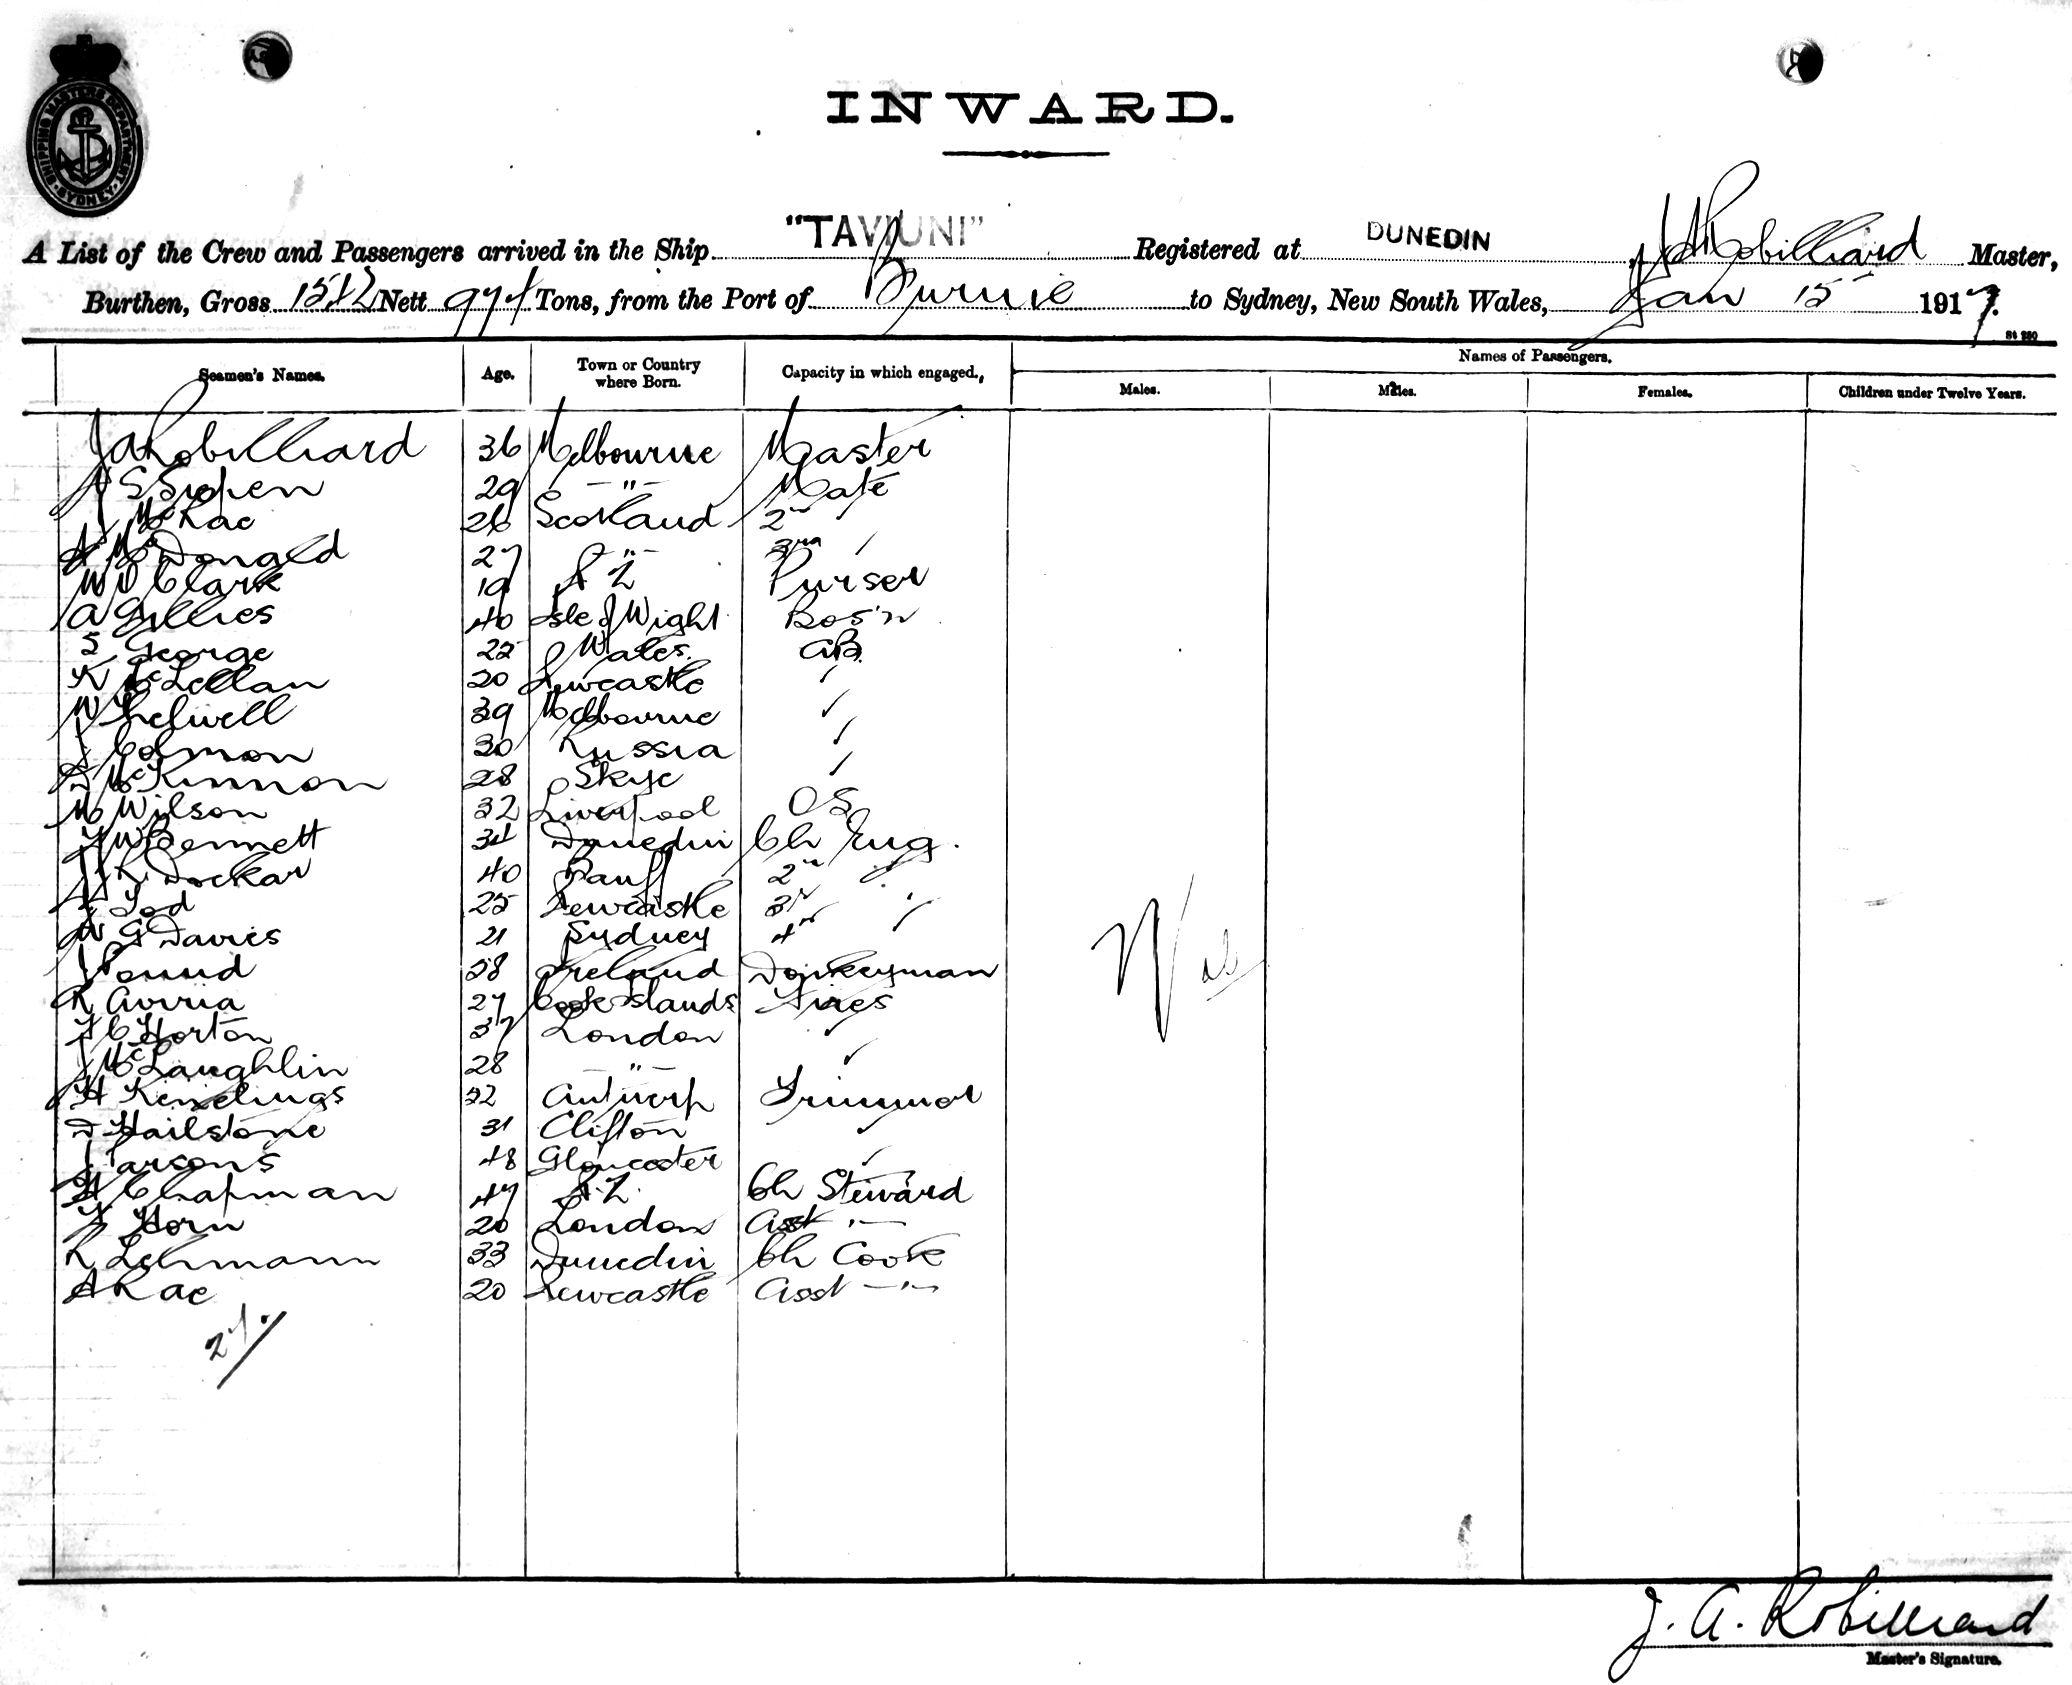 SHIPPING MASTERS DEPARTMENT · SYDNEY ·
INWARD.
A List of the Crew and Passengers arrived in the Ship "TAVIUNI" Registered at DUNEDIN, J A Robilliard Master,
Burthen, Gross 1542 Nett 974 Tons, from the Port of Burnie to Sydney, New South Wales, Jan 15 1917.
St 280
Seamen's Names. Age. Town or Country where Born. Capacity in which engaged. Names of Passengers.
Males. Males. Females. Children under Twelve Years.
J A Robilliard 36 Melbourne Master
S 29 -"- Mate
J McRae 26 Scotland 2nd "
A McDonald 27 -"- 3rd "
W D Clark 19 N Z Purser
A Gillies 40 Isle of Wight Bos'n
S George 22 Wales. AB.
K McLellan 20 Newcastle "
W Thelwell 39 Melbourne "
J Colmon 30 Russia "
D McKinnon 28 Skye "
M Wilson 32 Liverpool OS
F W Bennett 34 Dunedin Ch Eng.
J K Dockar 40 Banff 2nd "
J Tod 25 Newcastle 3rd "
W G Davies 21 Sydney 4th "
J Pound 38 Ireland Donkeyman
R Avvria 27 Cook Islands Fires
F C Horton 37 London "
J McLaughlin 28 -"- "
H 22 Antwerp Trimmer
D Hailstone 31 Clifton "
J Parsons 48 Gloucester "
H Chapman 47 N.Z. Ch Steward
F Horn 20 London Asst -"-
R Lehmann 33 Dunedin Ch Cook
A Rae 20 Newcastle Asst -"-
27.
J. A. Robilliard
Master's Signature.